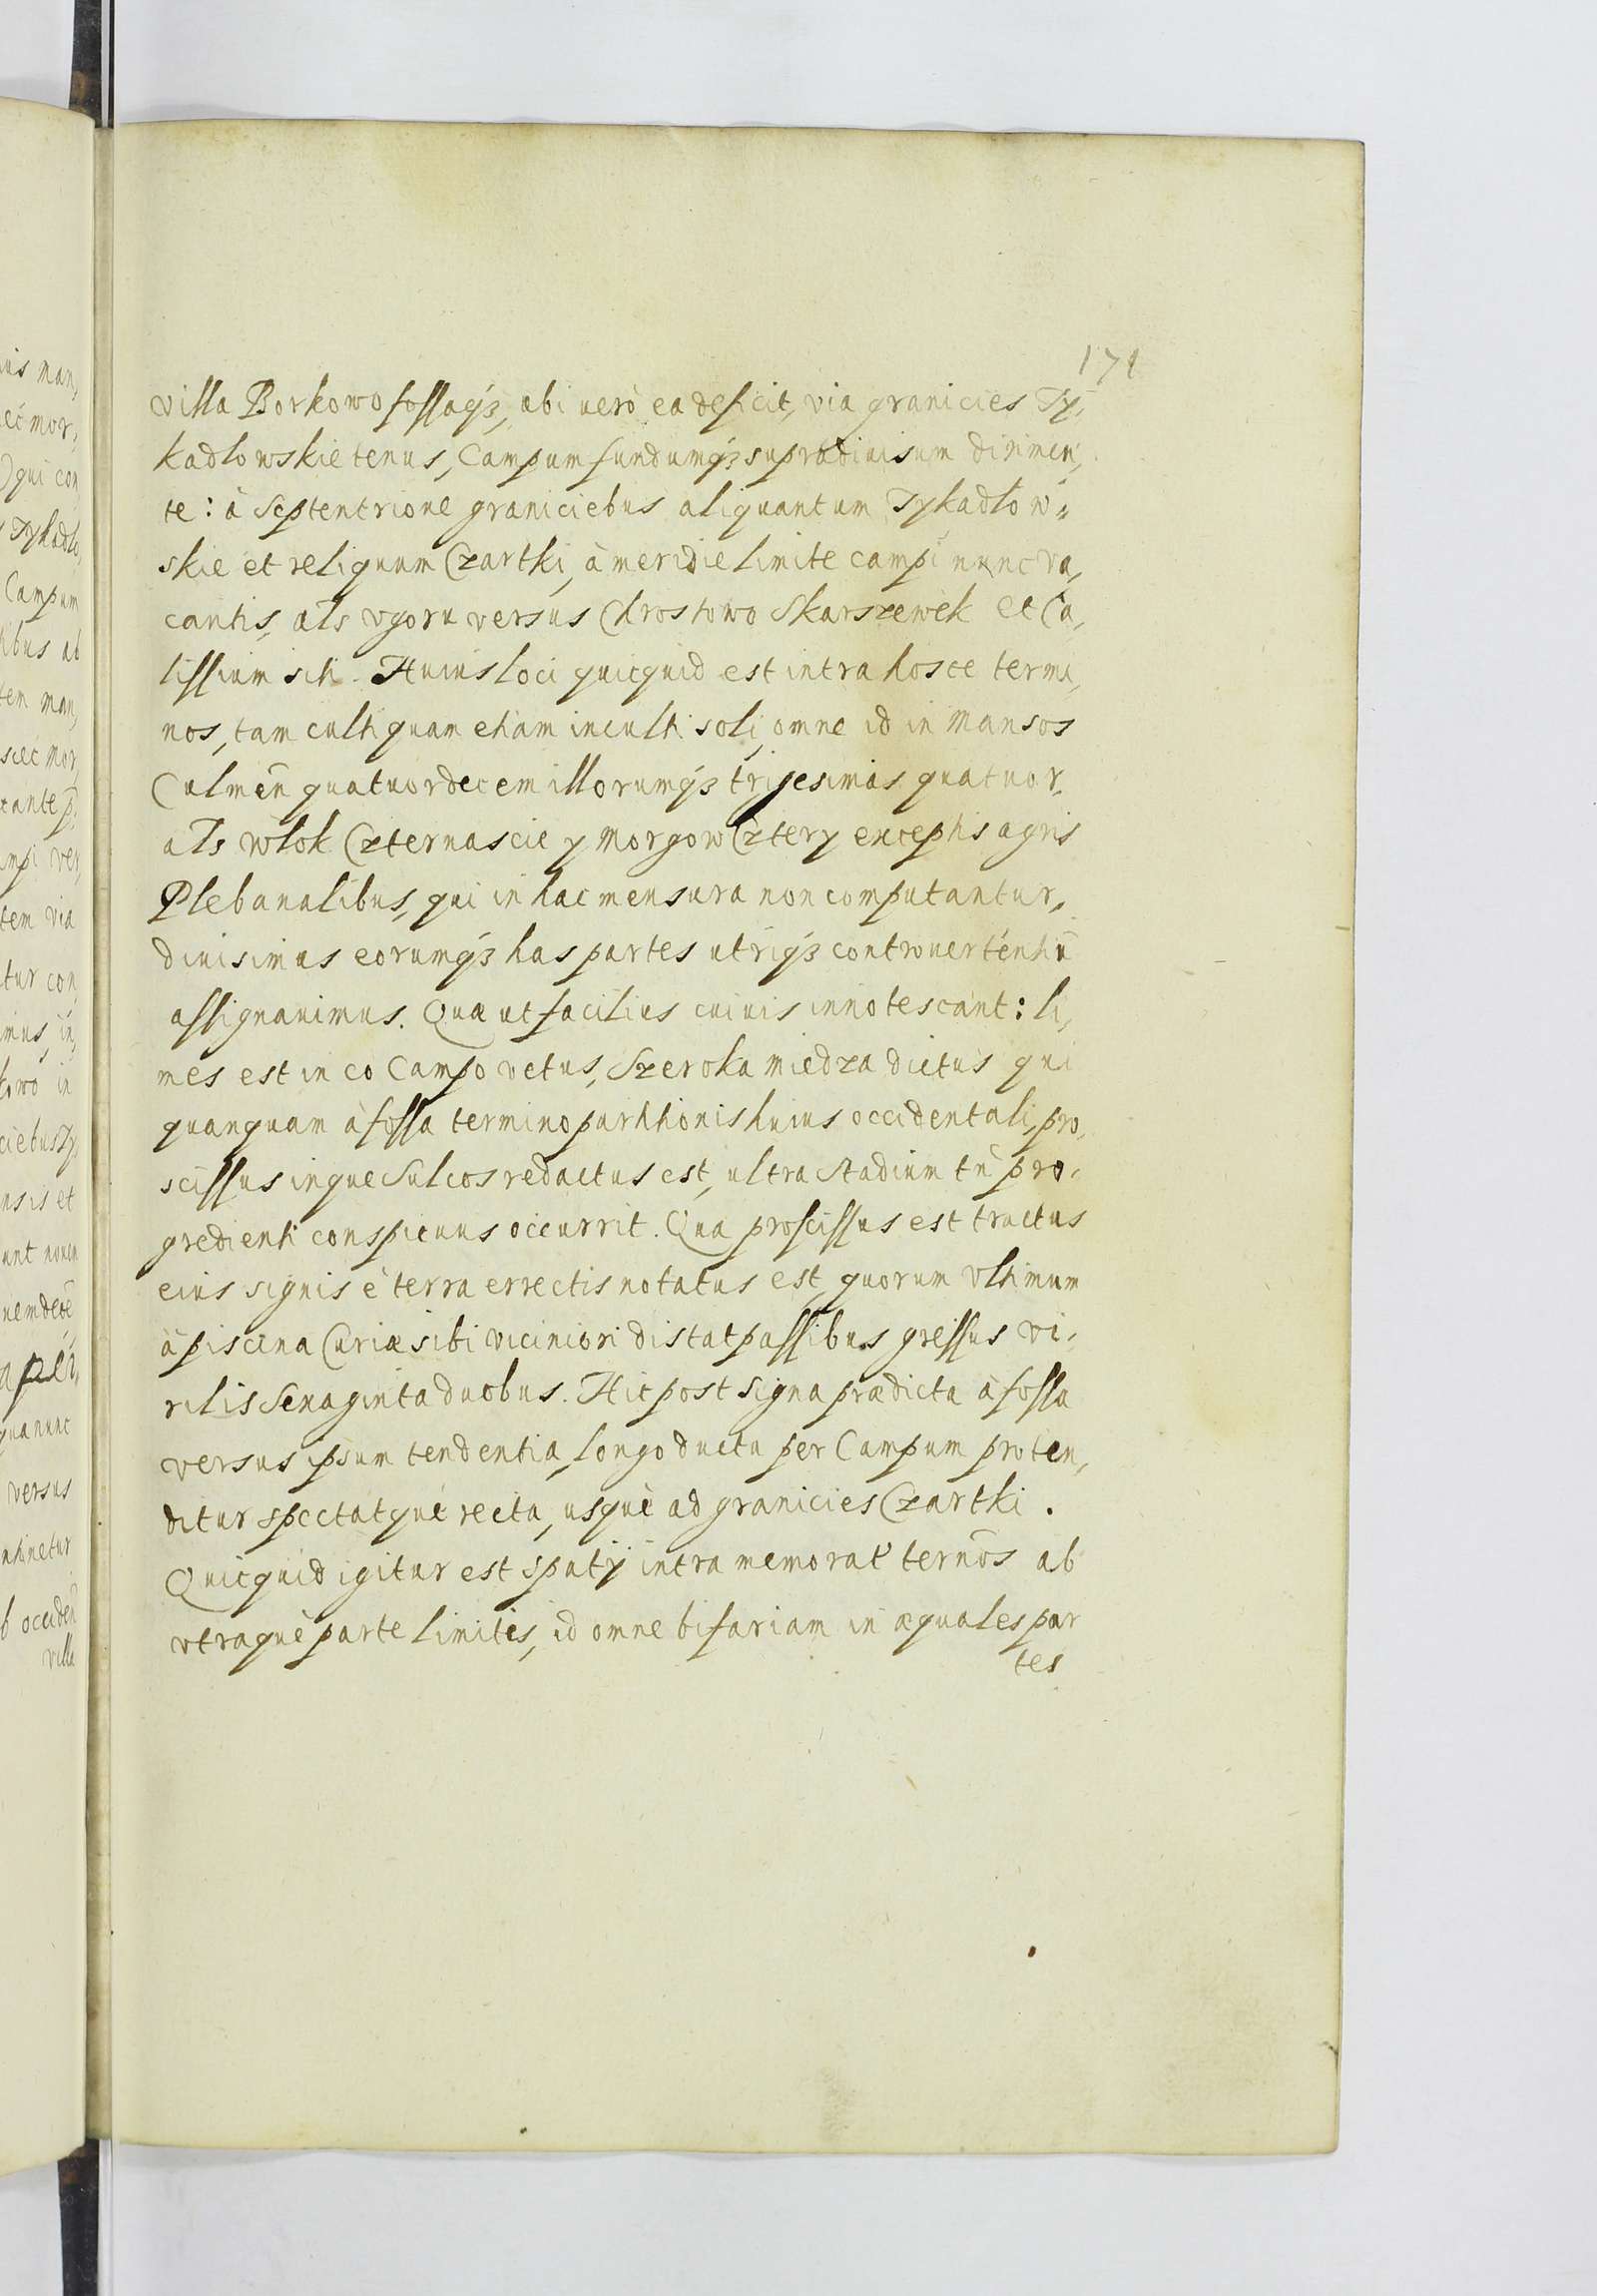 171
villa Borkowo fossaq́ʒ, ubi uerò ea deficit, via granicies Ty,
kadlowskie tenus, Campum fundumq́ʒ supradiuisum dirimen,
te: à Septentrione graniciebus aliquantum Tykadłow„
skie et reliquum Czartki, à meridie limite campi nunc va,
cantis, als vgoru versus Chrostowo Skarszewek et Ca,
lissium siti. Huius loci quicquid est intra hosce termi,
nos, tam culti quam etiam inculti soli, omne id in Mansos
Culmeñ quatuordecem illorumq́ʒ trigesimas quatuor,
als włok Czternascie y Morgow Cztery exceptis agris
Plebanalibus, qui in hac mensura non computantur,
diuisimus eorumq́ʒ has partes utriq́ʒ controuertentiũ
assignauimus. Quæ ut facilius cuiuis innotescant: li,
mes est in eo Campo vetus, Szeroka miedza dictus qui
quanquam à fossa termino partitionis huius occidentali, pro,
scissus inque Sulcos redactus est, ultra Stadium tñ pro,
gredienti conspicuus occurrit. Qua proscissus est tractus
eius signis è terra errectis notatus est, quorum vltimum
à piscina Curiæ sibi viciniori distat passibus gressus vi,
rilis Sexaginta duobus. Hic post signa prædicta à fossa
versus ipsum tendentia, longo ductu per Campum proten,
ditur spectatquè recta, usquè ad granicies Czartki.
Quicquid igitur est spatij intra memorat̃ termõs ab
vtraquè parte limites, id omne bifariam in æquales par
tes
ius man,
ec mor,
qui con
Tykadlo,
Campum
ibus ab
tem man,
mpi ver,
tem via
tur con
imus, in,
kowo in
ciebus Ty,
nsis et
unt nouem
qua nunc
versus
ntinetur
b occideñ
villa